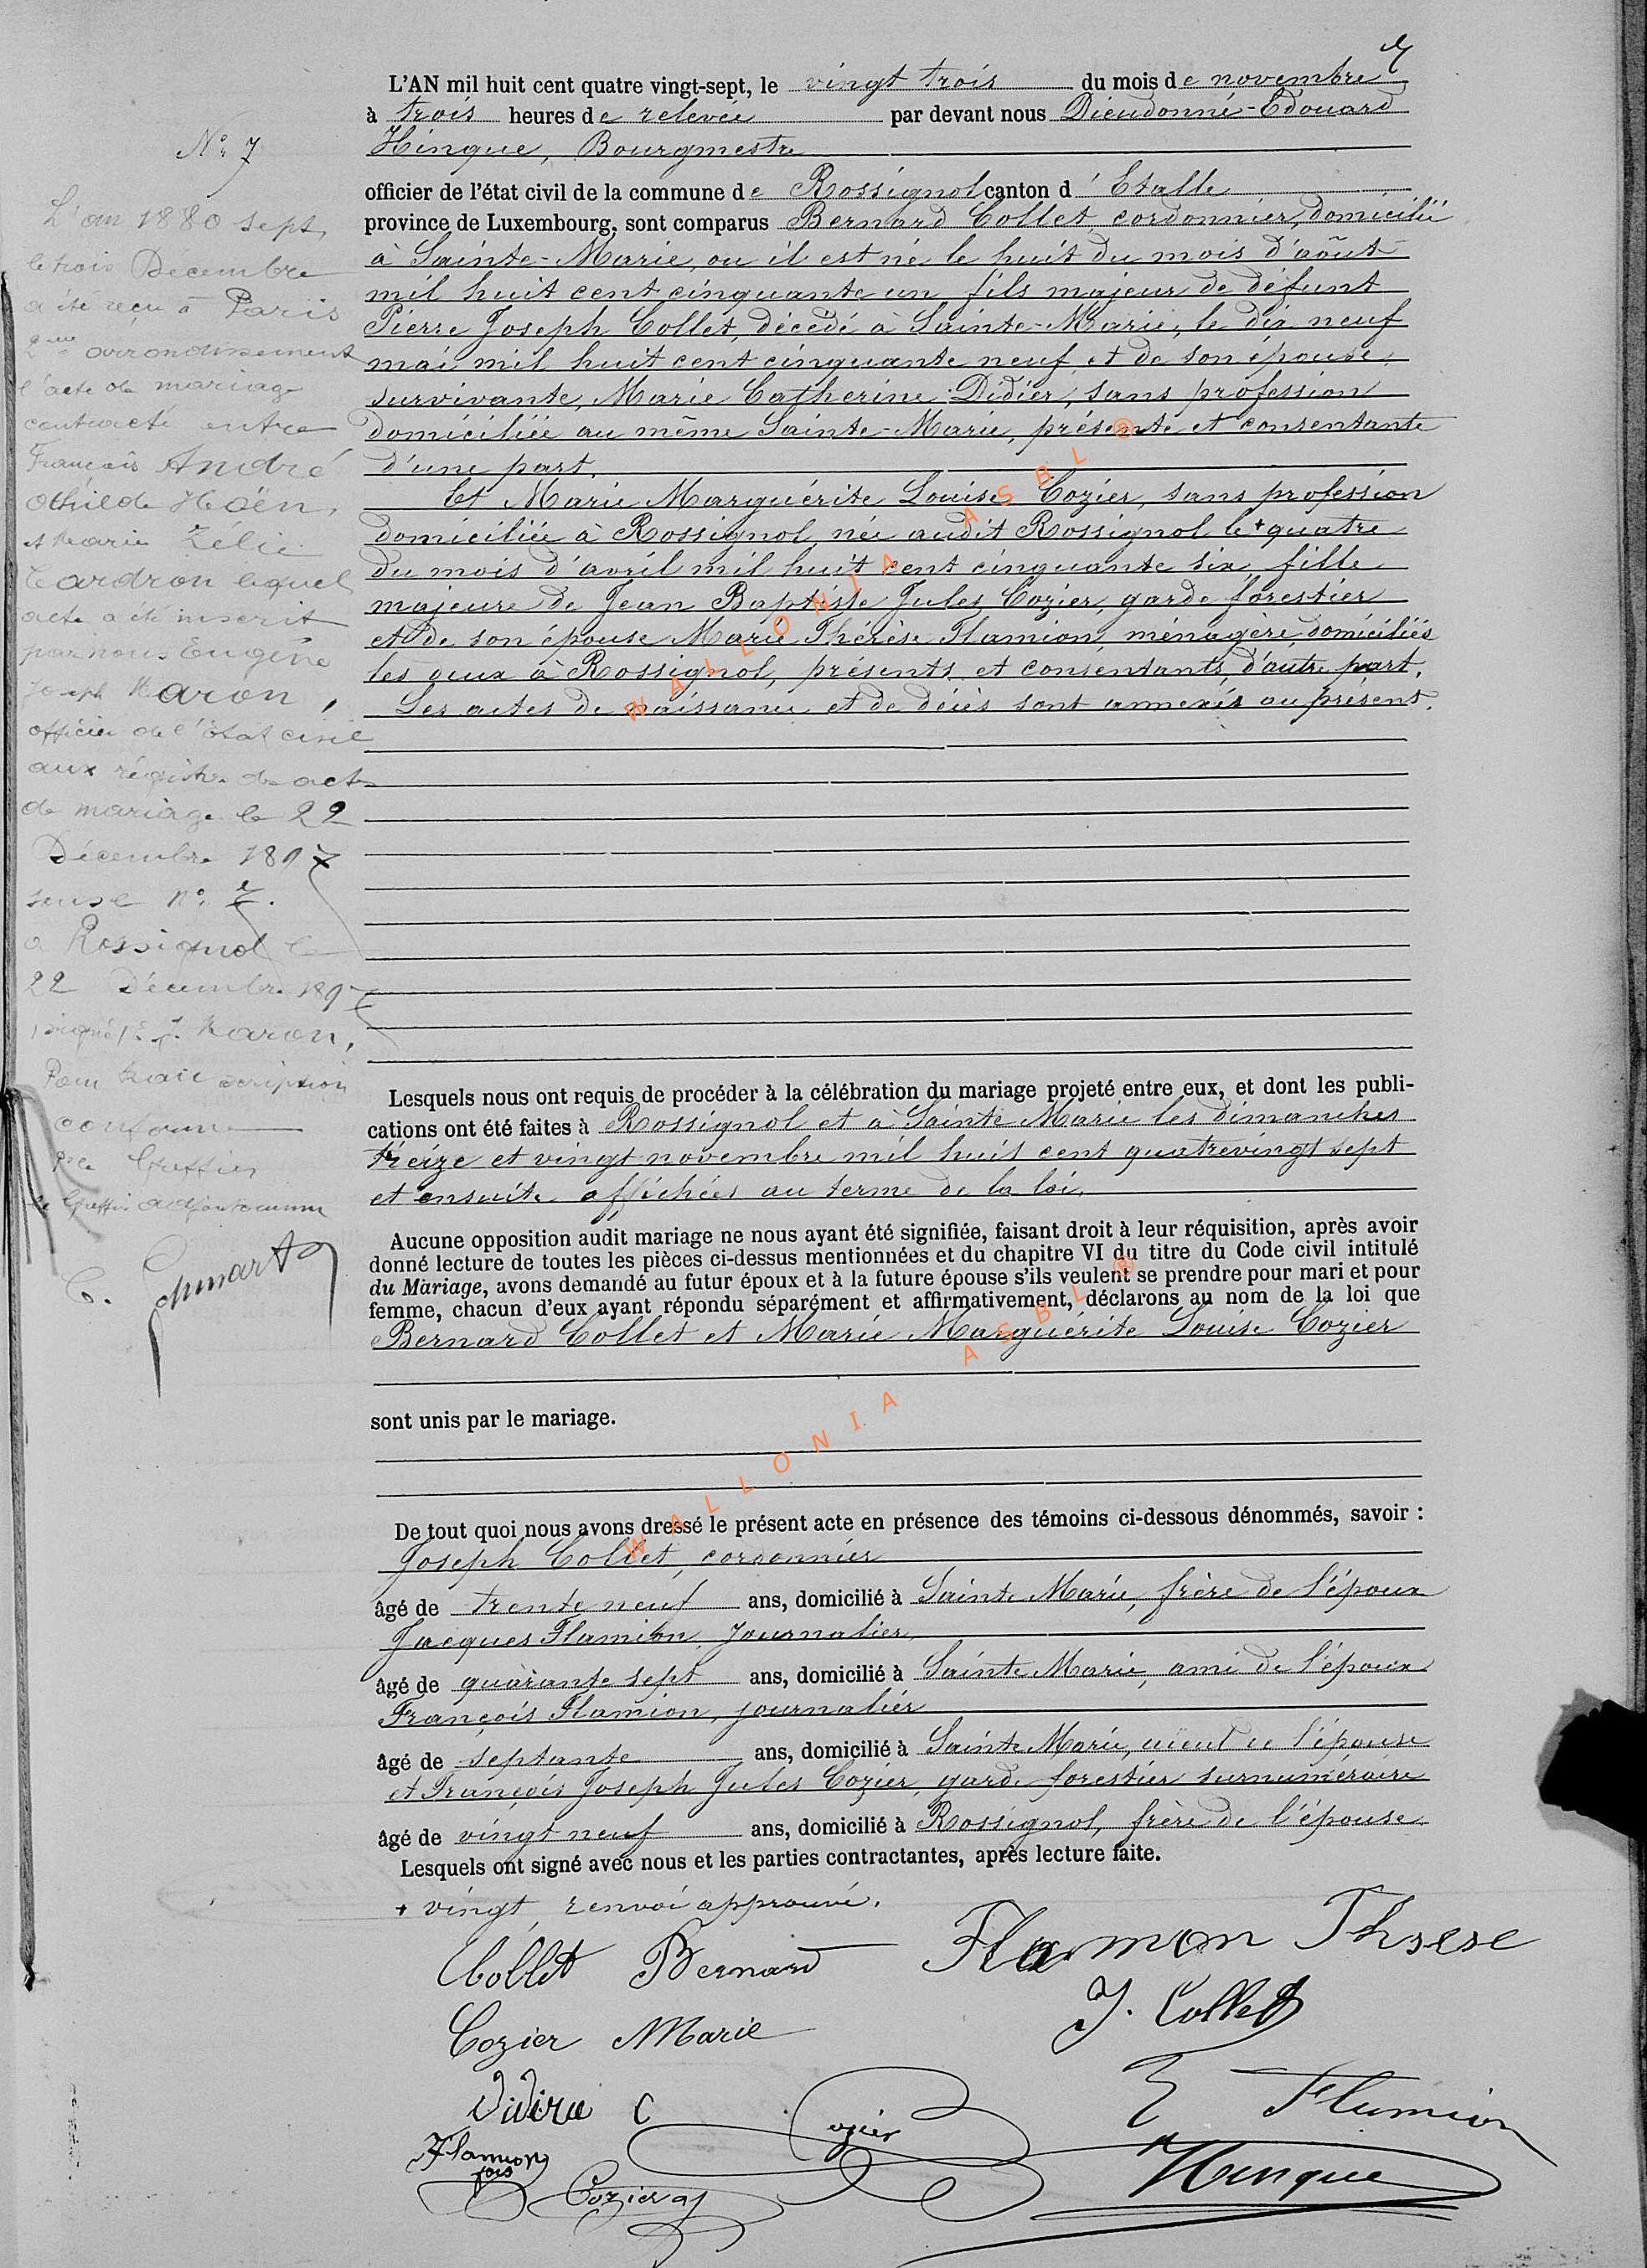 7
L'AN mil huit cent quatre vingt-sept, le vingt trois du mois de novembre
à trois heures de relevée par devant nous Dieudonné-Edouard
Hinque, Bourgmestre
officier de l'état civil de la commune de Rossignol canton d'Etalle
province de Luxembourg, sont comparus Bernard Collet, cordonnier, domicilié
à Sainte-Marie, ou il est né le huit du mois d'août
mil huit cent cinquante un fils majeur de défunt
Pierre Joseph Collet, décédé à Sainte-Marie, le dix neuf
mai mil huit cent cinquante neuf et de son épouse
survivante, Marie Catherine Didier, sans profession
domiciliée au même Sainte-Marie, présente et consentante
d'une part.
Et Marie Marguérite Louise Cozier, sans profession
domiciliée à Rossignol, née audit Rossignol le + quatre
du mois d'avril mil huit cent cinquante six, fille
majeure de Jean Baptiste Jules Cozier, garde forestier
et de son épouse Marie Thérèse Flamion, ménagère, domiciliés
les deux à Rossignol, présents et consentants, d'autre part.
Les actes de naissance et de décès sont annexés au présent.
Lesquels nous ont requis de procéder à la célébration du mariage projeté entre eux, et dont les publi-
cations ont été faites à Rossignol et à Sainte Marie les dimanches
treize et vingt novembre mil huit cent quatrevingt sept
et ensuite affichées au terme de la loi.
Aucune opposition audit mariage ne nous ayant été signifiée, faisant droit à leur réquisition, après avoir
donné lecture de toutes les pièces ci-dessus mentionnées et du chapitre VI du titre du Code civil intitulé
du Mariage, avons demandé au futur époux et à la future épouse s'ils veulent se prendre pour mari et pour
femme, chacun d'eux ayant répondu séparément et affirmativement, déclarons au nom de la loi que
Bernard Collet et Marie Marguérite Louise Cozier
sont unis par le mariage.
De tout quoi nous avons dressé le présent acte en présence des témoins ci-dessous dénommés, savoir :
Joseph Collet, cordonnier
âgé de trente neuf ans, domicilié à Sainte Marie, frère de l'époux
Jacques Flamion, journalier
âgé de quarante sept ans, domicilié à Sainte Marie, ami de l'époux
François Flamion, journalier
âgé de septante ans, domicilié à Sainte Marie, aïeul de l'épouse
et François Joseph Jules Cozier, garde forestier surnuméraire
âgé de vingt neuf ans, domicilié à Rossignol, frère de l'épouse
Lesquels ont signé avec nous et les parties contractantes, après lecture faite.
+ vingt, renvoi approuvé.
Collet Bernard Flamion Thsese
Cozier Marie J. Collet
Didier C Cozier Flamion
Flamion fois Cozier Hinque
N° 7
L'an 1880 sept,
le trois Decembre
a été reçu à Paris
2me arrondissement
l'acte de mariage
contracté entre
François André
Othilde Hoën,
et Marie Zélie
Tardron lequel
acte a été inscrit
par nous Eugène
Joseph Maron,
officier de l'état civil
aux régistre de acte
de mariage le 22
Décembre 1897
sous le N°
à Rossignol le
22 Décembre 1897
(signé) E. J. Maron,
Pour transcription
conforme
le Greffier adjoint
C. Schmartz
WALLONIA ASBL ®
WALLONIA ASBL ®